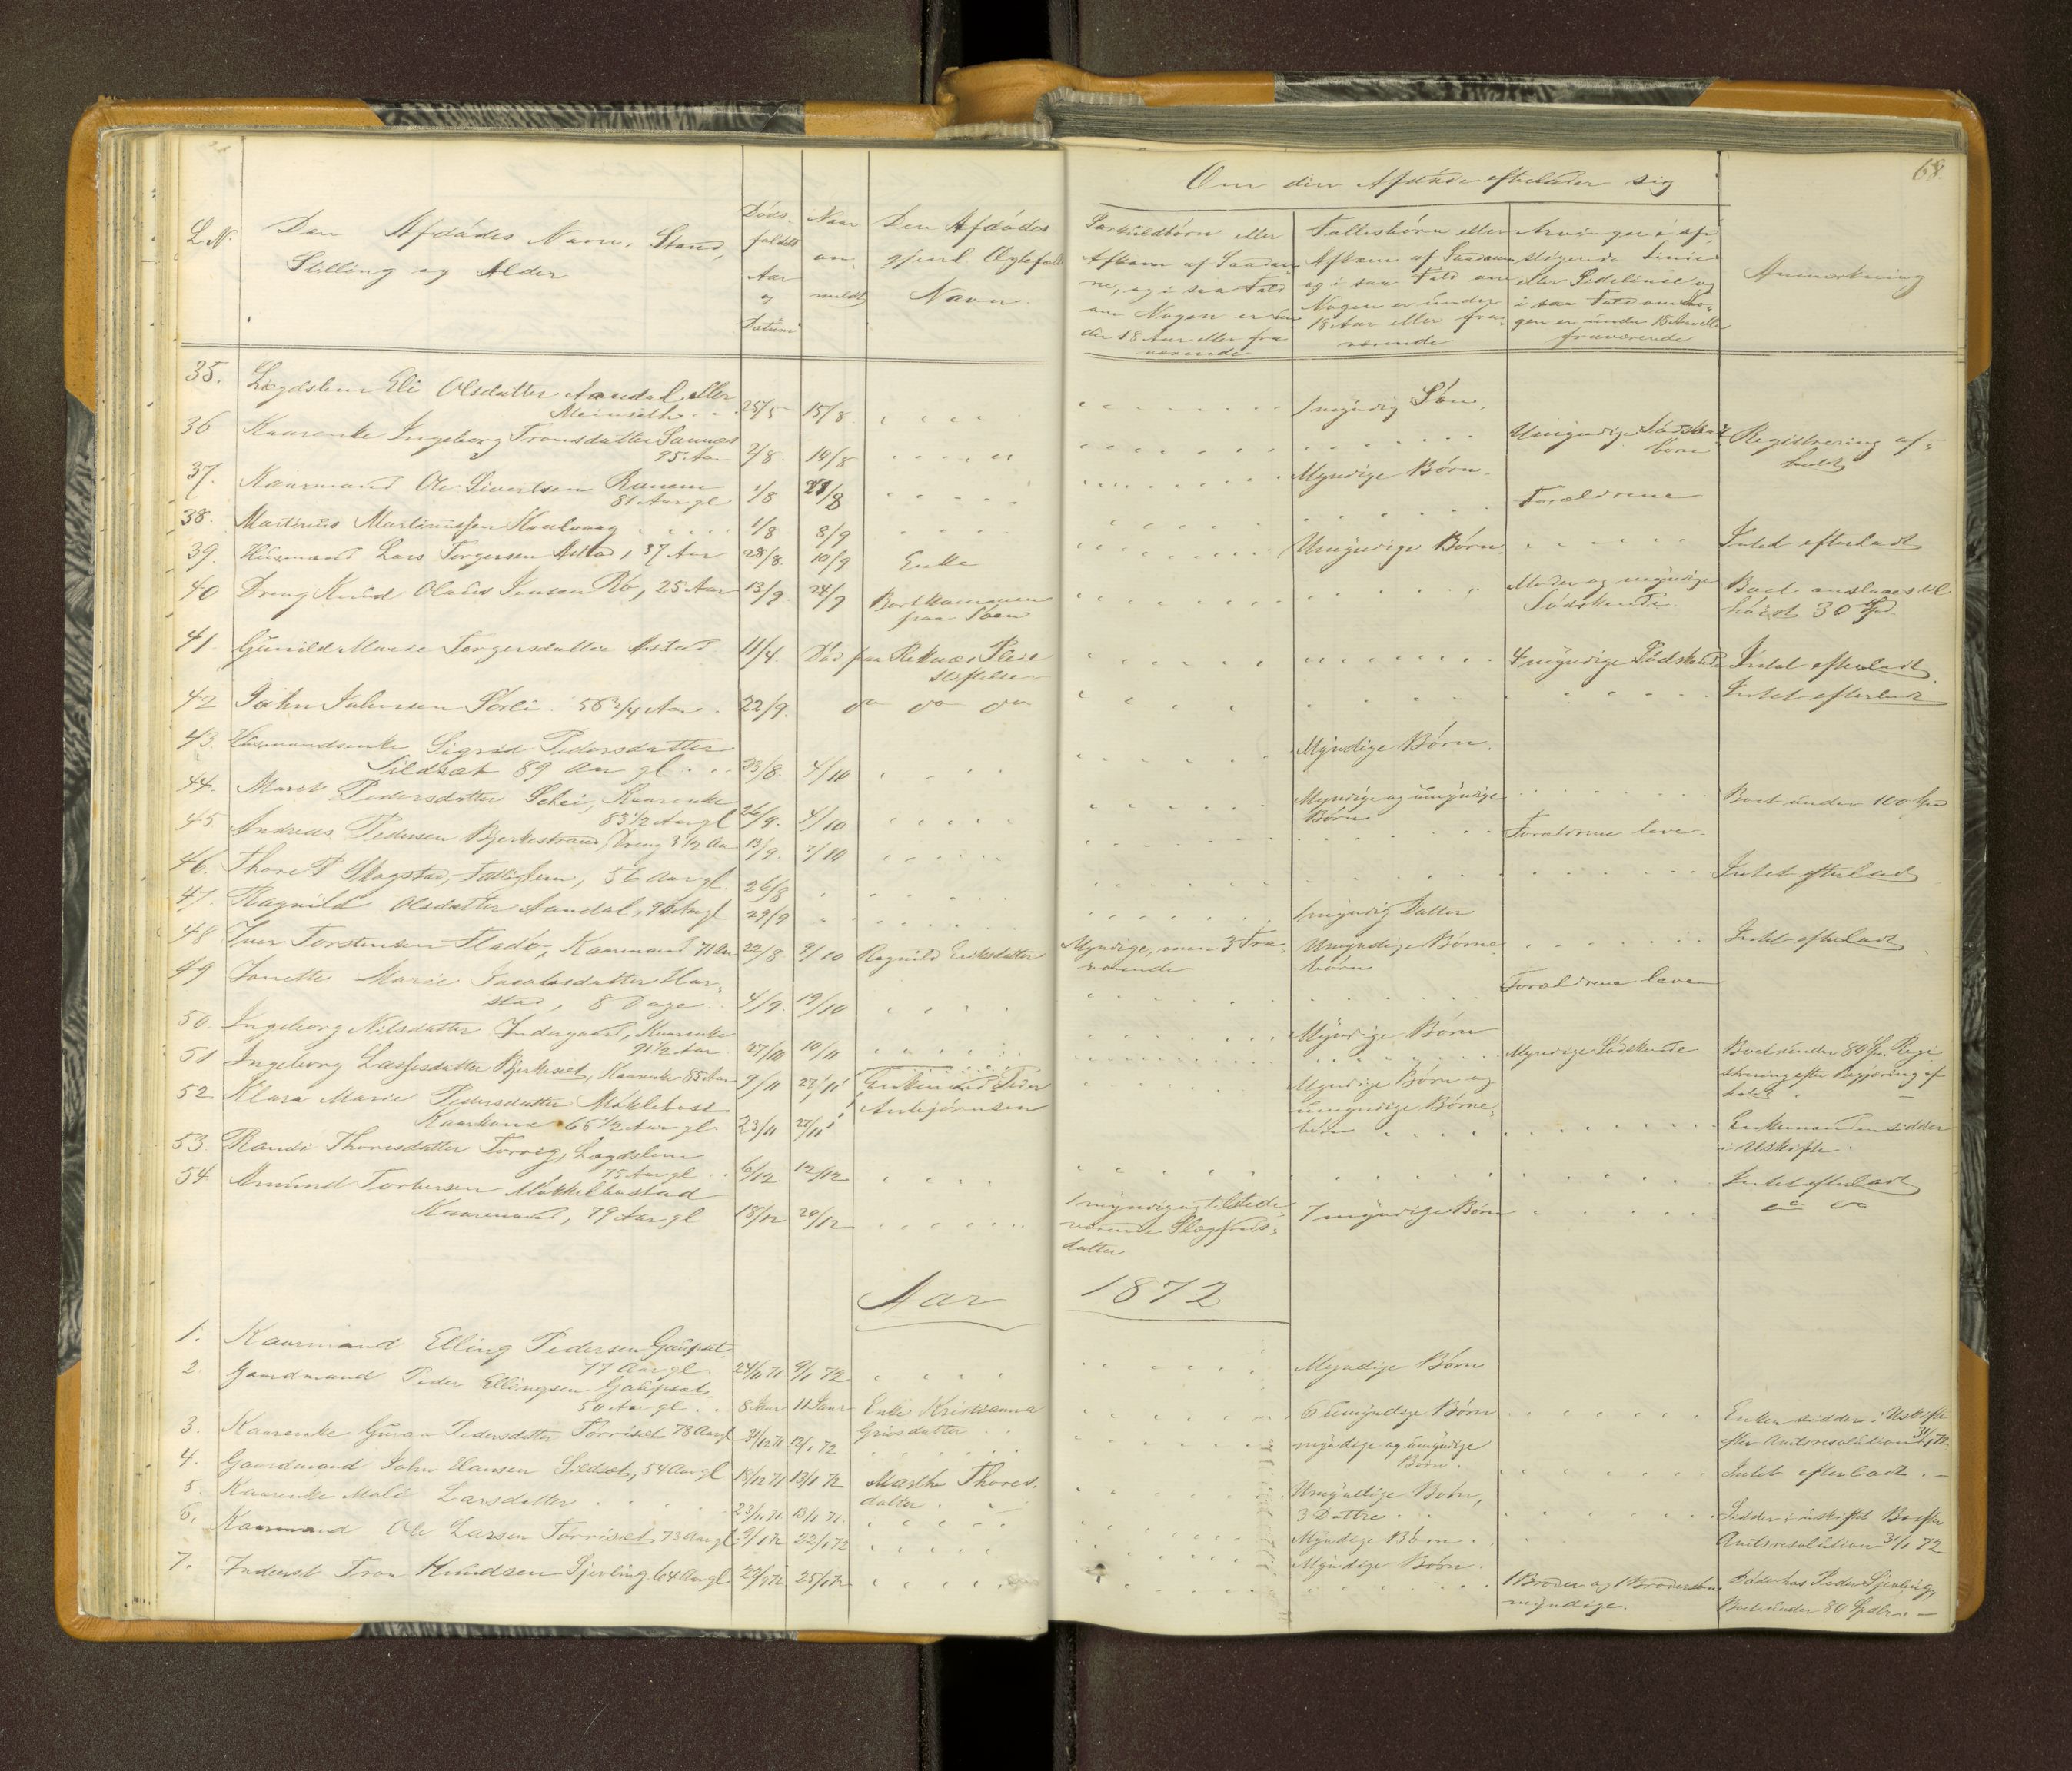 68.
Om den Afdøde efterlader sig
L.N.
Den Afdødes Navn, Stand,
Stilling og Alder
Døds-
faldets
Aar
og
Datum
Naar
an-
meldt
Den Afdødes
gjenl. Ægtefælles
Navn
Særkuldbørn eller
Afkom af Saadan-
ne, og i saa Fald
om Nogen er un-
der 18 Aar eller fra-
værende
Fællesbørn eller
Afkom af Saadanne
og i saa Fald om
Nogen er under
18 Aar eller fra-
værende
Arvinger i op-
stigende Linie
eller Sidelinie og
i saa Fald om No-
gen er under 18 Aar eller
fraværende
Anmærkning
35. Lægdslem Eli Olsdatter Aandal eller
Meinseth 25/5 15/8 1 myndig Søn,
36 Kaarenke Ingeborg Tronsdatter Sannes
95 Aar 2/8 19/8 Umyndige Sødskende
børn Registrering af-
holdt
37. Kaarmand Ole Sivertsen Ranem
81 Aar gl 1/8 27/8 Myndige Børn
38. Martinus Martinussen Kvalvaag 1/8 8/9 Forældrene
39. Husmand Lars Torgersen Astad, 37 Aar 28/8. 10/9 Enke Umyndige Børn. Intet efterladt
40 Dreng Knud Olaus Jensen Rø, 25 Aar 13/9 24/9 Bortkommen
paa Søen Moder og myndige
Sødskende Boet anslaaes til
høist 30 Spd
41. Gunild Marie Torgersdatter Astad 11/4. Død paa Reknæs Pleie
stiftelse 4 myndige Sødskende Intet efterladt
42 John Johnsen Sørli 56 3/4 Aar 22/9. do do do Intet efterladt
43. Husmandsenke Sigrid Pedersdatter
Sildsæt 89 Aar gl 23/8. 4/10 Myndige Børn.
44. Marit Pedersdatter Schei, Kaarenke
83 1/2 Aar gl 26/9. 4/10 Myndige og umyndige
Børn Boet under 100 Spd
45 Andreas Pedersen Bjerkestrand, Dreng 3 1/2 Aar 13/9. 7/10 Forældrene leve
46. Thore P Skogstad, Fattiglem, 56 Aar gl. 26/8 Intet efterladt
47. Ragnild Olsdatter Aandal, 90 Aar gl 29/9 1 myndig Datter
48 Iver Torstensen Fladø, Kaarmand 71 Aar 22/8 9/10 Ragnild Eriksdatter Myndige, men 3 Fra-
værende Umyndige Børne-
børn Intet efterladt
49 Janette Marie Jacobsdatter Har-
stad, 8 Dage 4/9. 19/10 Forældrene leve
50. Ingeborg Nilsdatter Indergaard, Kaarenke
91 1/2 Aar 27/10 10/11 Myndige Børn
51 Ingeborg Lassesdatter Bjerkeset, Kaarenke 85 Aar 9/11 27/11 Myndige Sødskende Boet under 80 Spd. Regi-
strering efter Begjæring af-
holdt
52 Klara Marie Pedersdatter Møklebust
Kaarkone 66 1/2 Aar gl. 23/11 27/11 Enkemand Peder
Anbjørnsen Myndige Børn og
umyndige Børne-
børn Enkemanden sidder
i Uskifte.
53. Randi Thoresdatter Torvig, Lægdslem
75 Aar gl 6/12 12/12 Intet efterladt
54 Amund Torbersen Møkkelbostad
Kaarmand, 79 Aar gl 18/12 20/12 1 myndig og tilstede-
værende Slegfreds-
datter 7 myndige Børn do do
Aar 1872
1. Kaarmand Elling Pedersen Gaupset
77 Aar gl. 24/11 71 9/1 72 Myndige Børn
2. Gaardmand Peder Ellingsen Gaupset
50 Aar gl. 8 Jan 11 Janr Enke Kristianna
Griesdatter 6 Umyndige Børn Enken sidder i Uskifte
efter Amtsresolution 31/1 72
3. Kaarenke Guran Pedersdatter Torriset 78 Aar gl 31/12 71 12/1 72 myndige og umyndige
Børn. Intet efterladt.
4. Gaardmand John Hansen Sildset, 54 Aar gl. 18/12 71 13/1 72 Marthe Thores-
datter Umyndige Børn,
3 Døttre Sidder i uskiftet Bo efter
Amtsresolution 31/1 72
5. Kaarenke Mali Larsdatter 23/11 71. 13/1 71. Myndige Børn.
6. Kaarmand Ole Larsen Torriset 73 Aar gl. 9/1 72 22/1 72 Myndige Børn.
7. Inderst Tron Knudsen Sjevling 64 Aar gl 22/1 72 25/1 72 1 Broder og 1 Brodersøn
myndige. Døde hos Peder Sjevling,
Boet under 80 Spdlr.